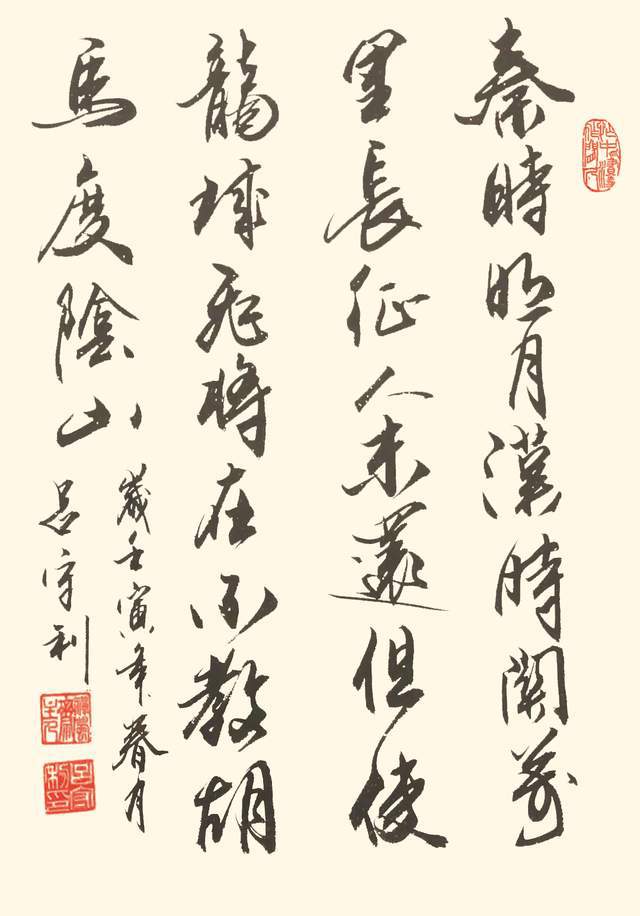 秦時明月漢時關萬
里長征人未還但使
龍城飛將在不教胡
馬度陰山
歲壬寅年春月
呂守利
呂守利印